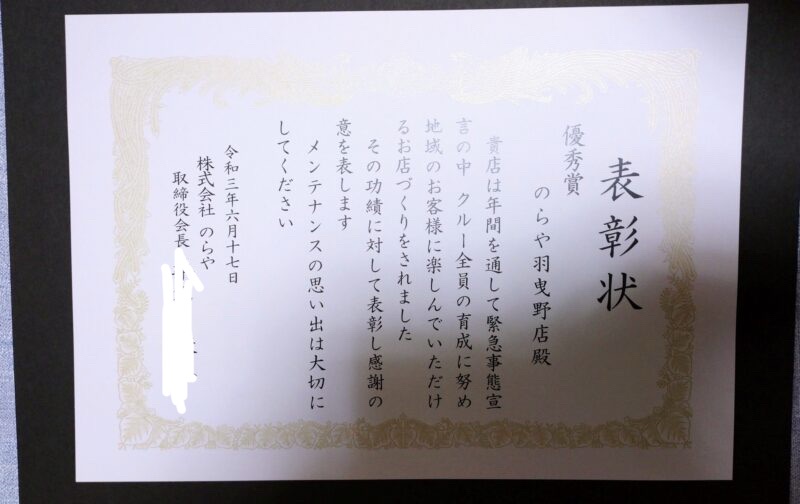 表彰状
優秀賞
のらや羽曳野店殿
貴店は年間を通して緊急事態宣
言の中 クルー全員の育成に努め
地域のお客様に楽しんでいただけ
るお店づくりをされました
その功績に対して表彰し感謝の
意を表します
メンテナンスの思い出は大切に
してください
令和三年六月十七日
株式会社 のらや
取締役会長